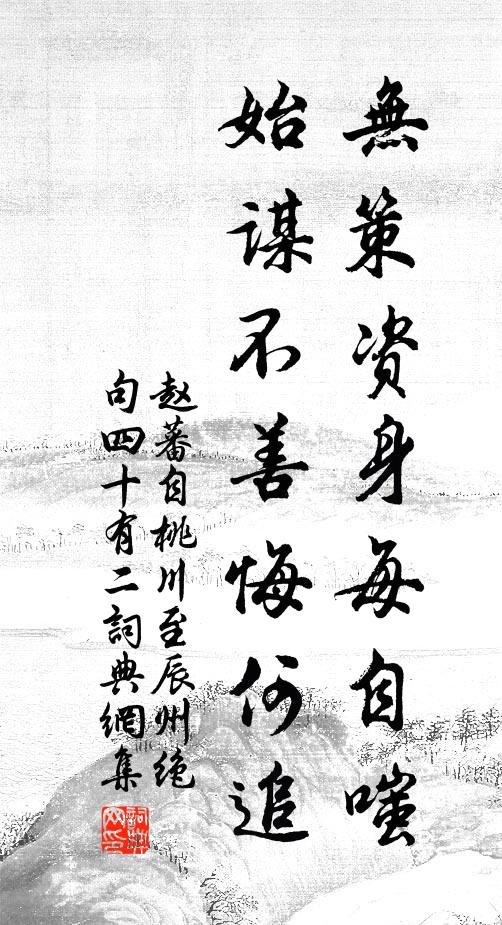 無策資身每自嗤
始謀不善悔何追
赵蕃自桃川至辰州絶
句四十有二詞典網集